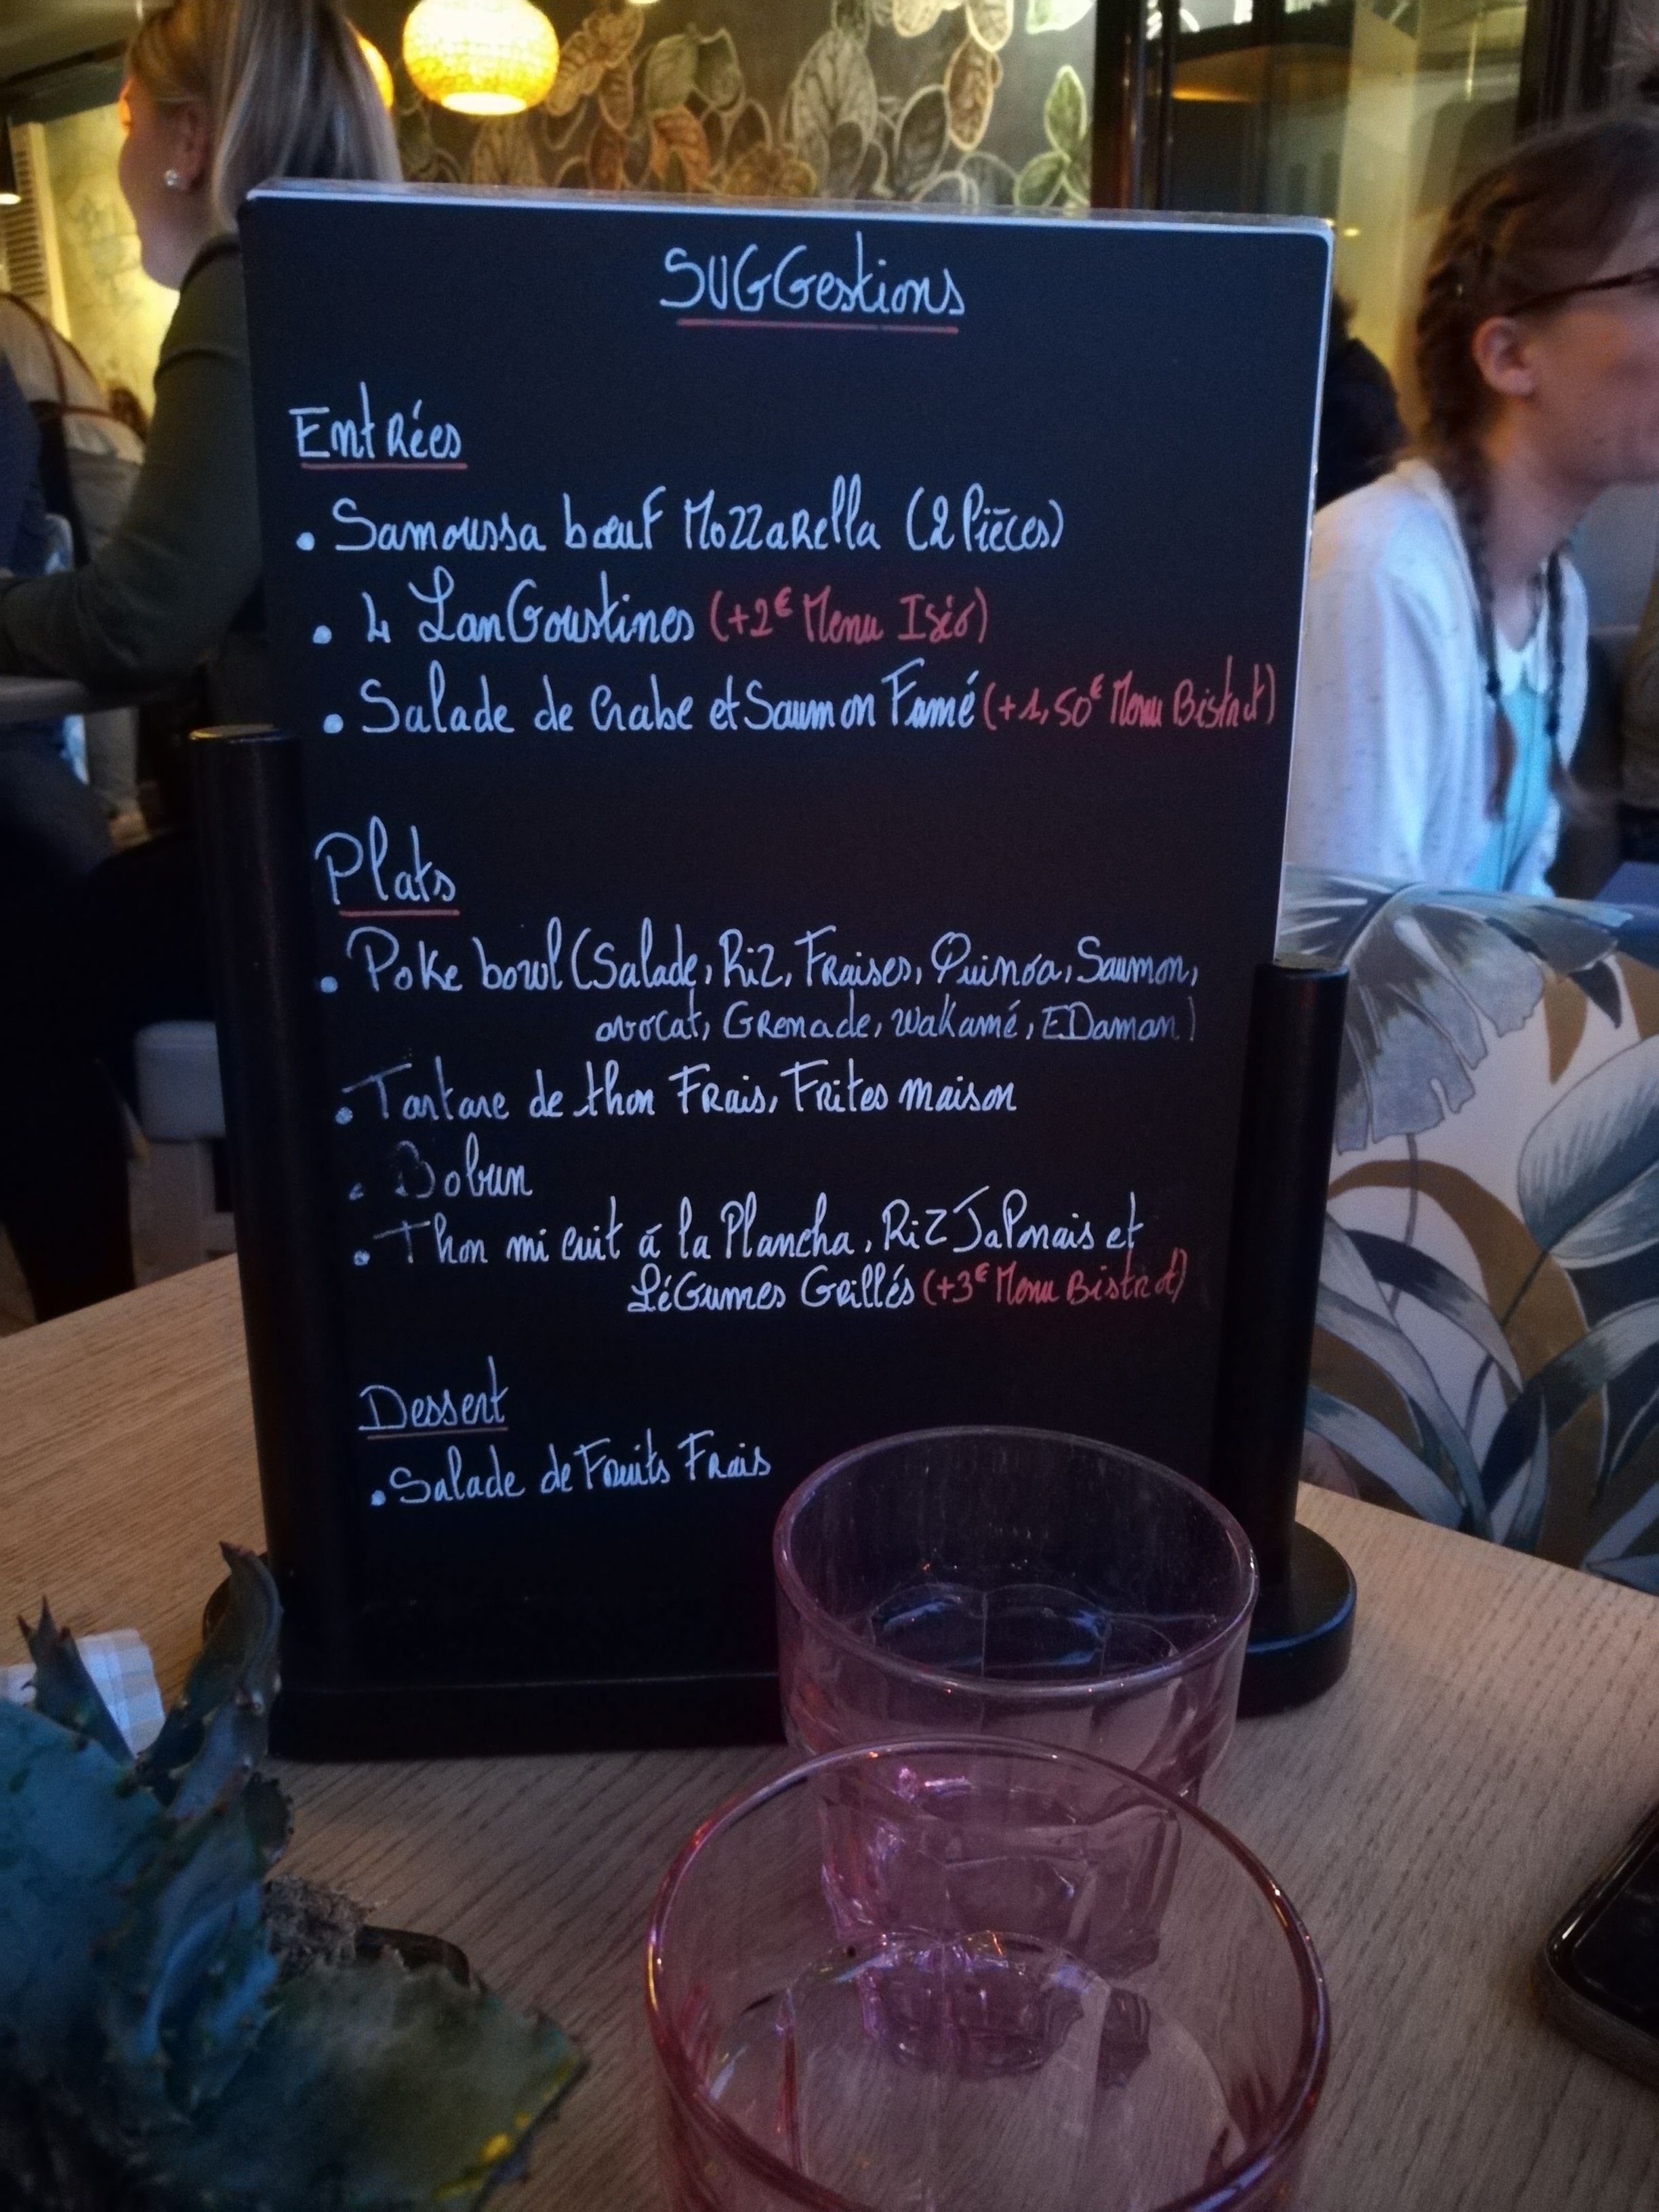 SUGGestions
Entrées
• Samoussa bœuf Mozzarella (2 Pièces)
• 4 LanGoustines (+2€ Menu Iséo)
• Salade de Crabe et Saumon Fumé (+1,50€ Menu Bistrot)
Plats
• Poke bowl (Salade, Riz, Fraises, Quinoa, Saumon,
avocat, Grenade, wakamé, EDamam)
• Tartare de thon Frais, Frites maison
• Bobun
• Thon mi cuit à la Plancha, Riz JaPonais et
LéGumes Grillés (+3€ Menu Bistrot)
Dessert
• Salade de Fruits Frais